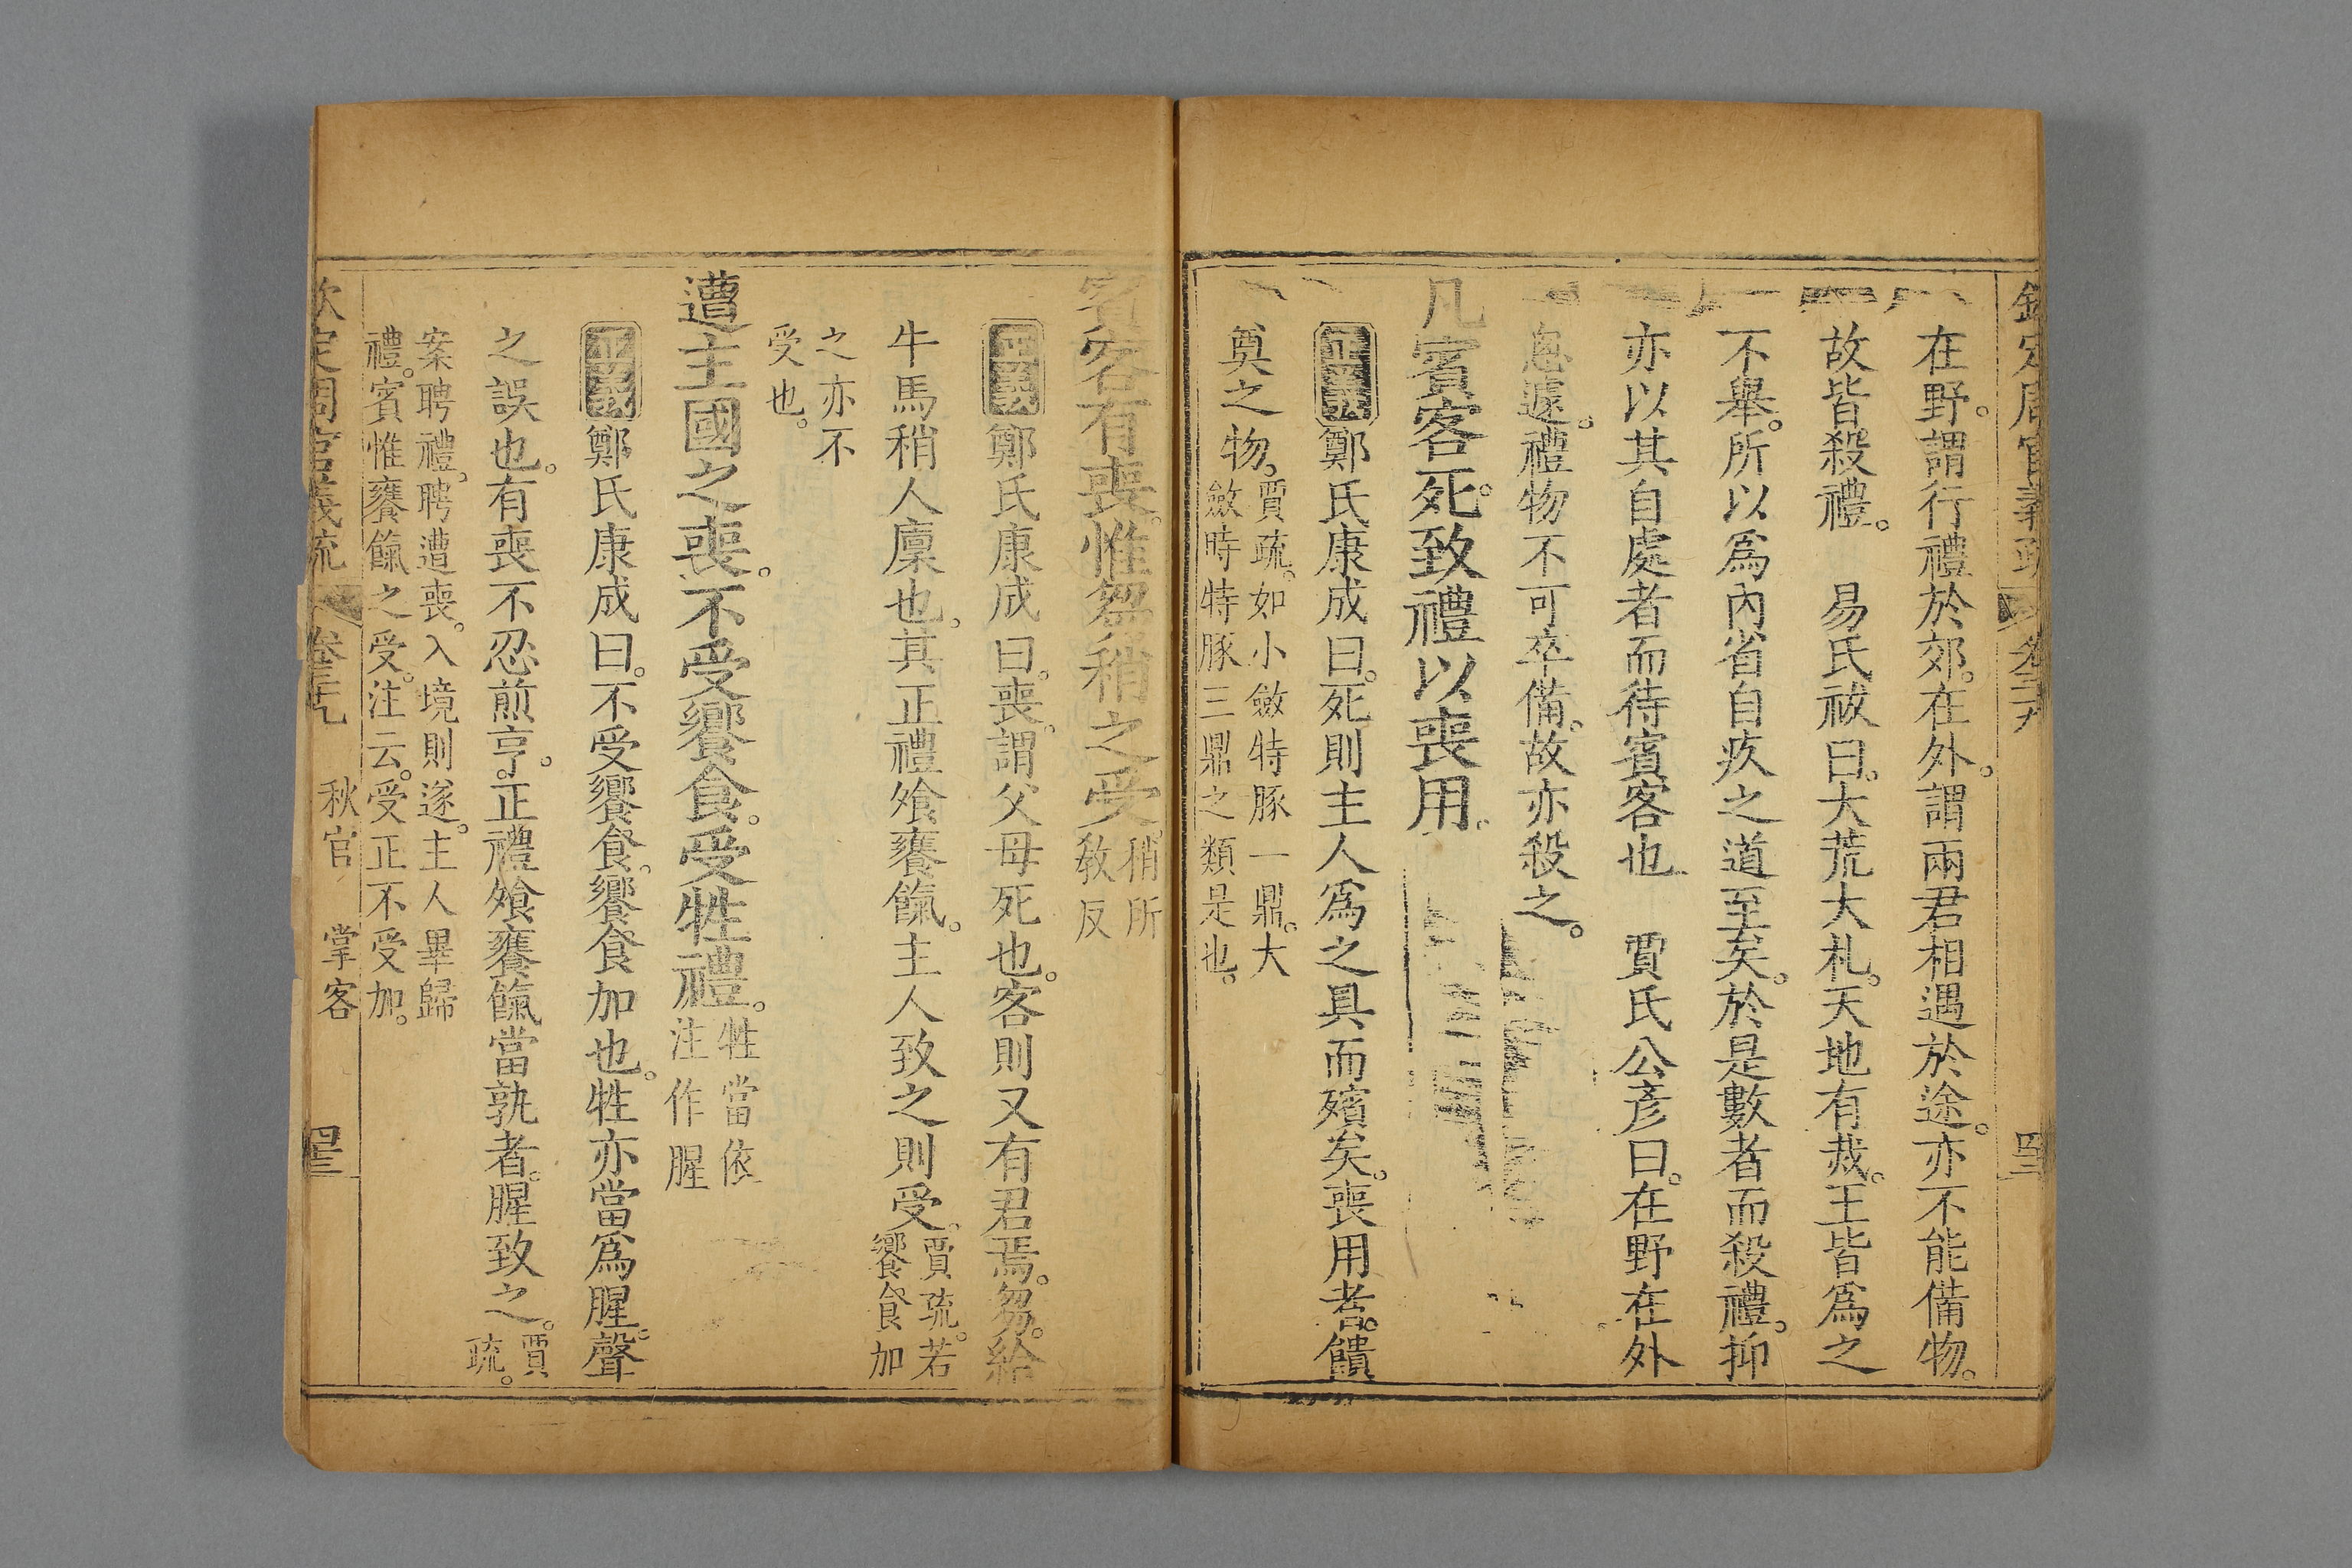 在野。謂行禮於郊。在外。謂兩君相遇於途。亦不能備物。
故皆殺禮。　易氏祓曰。大荒大札。天地有烖。王皆爲之
不舉。所以爲內省自疚之道至矣。於是數者而殺禮。抑
亦以其自處者而待賓客也　賈氏公彥曰。在野在外
怱遽。禮物不可卒備。故亦殺之。
凡賓客死。致禮以喪用。
正義鄭氏康成曰。死則主人爲之具而殯矣。喪用者。饋
奠之物。賈疏。如小斂特豚一鼎。大
斂時特豚三鼎之類是也。
賓客有喪。惟芻稍之受。稍所
敎反
正義鄭氏康成曰。喪。謂父母死也。客則又有君焉。芻。給
牛馬稍人廩也。其正禮飧饔餼。主人致之則受。賈疏。若
饗食加
之亦不
受也。
遭主國之喪。不受饗食。受牲禮。牲當依
注作腥
正義鄭氏康成曰。不受饗食。饗食加也。牲亦當爲腥。聲
之誤也。有喪不忍煎亨。正禮飧饔餼當孰者。腥致之。賈
疏。
案聘禮。聘遭喪。入境則遂。主人畢歸
禮。賓惟饔餼之受。注云。受正不受加。
欽定周官義疏　卷三十九　秋官　掌客　四十三